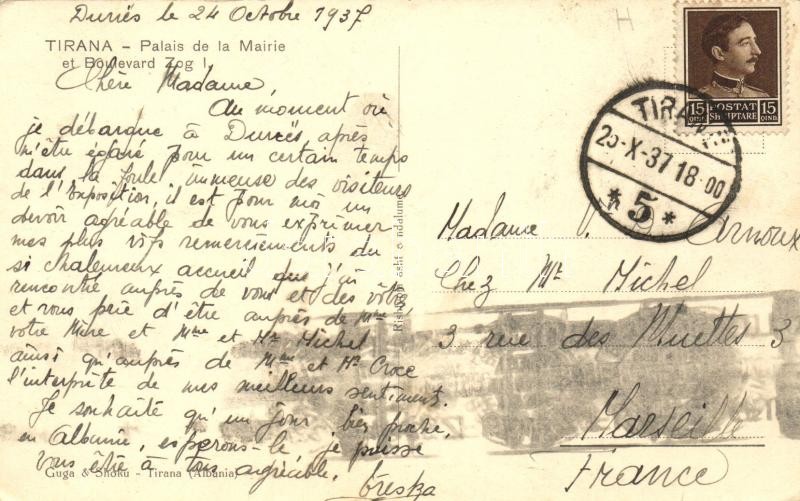 Durrës le 24 Octobre 1937
TIRANA – Palais de la Mairie
et Boulevard Zog I.
Chère Madame,
Au moment où
je débarque à Durrës, après
m'être égaré pour un certain temps
dans la foule immense des visiteurs
de l'Exposition, il est pour moi un
devoir agréable de vous exprimer
mes plus vifs remerciements du
si chaleureux accueil que j'ai
rencontré auprès de vous et des vôtres
et vous prie d'être auprès de Mme
votre Mère et Mme et Mr Michel
ainsi qu'auprès de Mme et Mr Croce
l'interprète de mes meilleurs sentiments.
Je souhaite qu'un jour, bien proche,
en Albanie, espérons-le, je puisse
vous être à tous agréable.
Guga & Shoku - Tirana (Albania)
Rishtypi asht e ndalume
H
15 QIND. POSTAT SHQIPTARE 15 QIND.
TIRANË
25-X-37 18-00
* 5 *
Madame V. B. Arnoux
Chez Mr Michel
3 rue des Muettes 3
Marseille
France